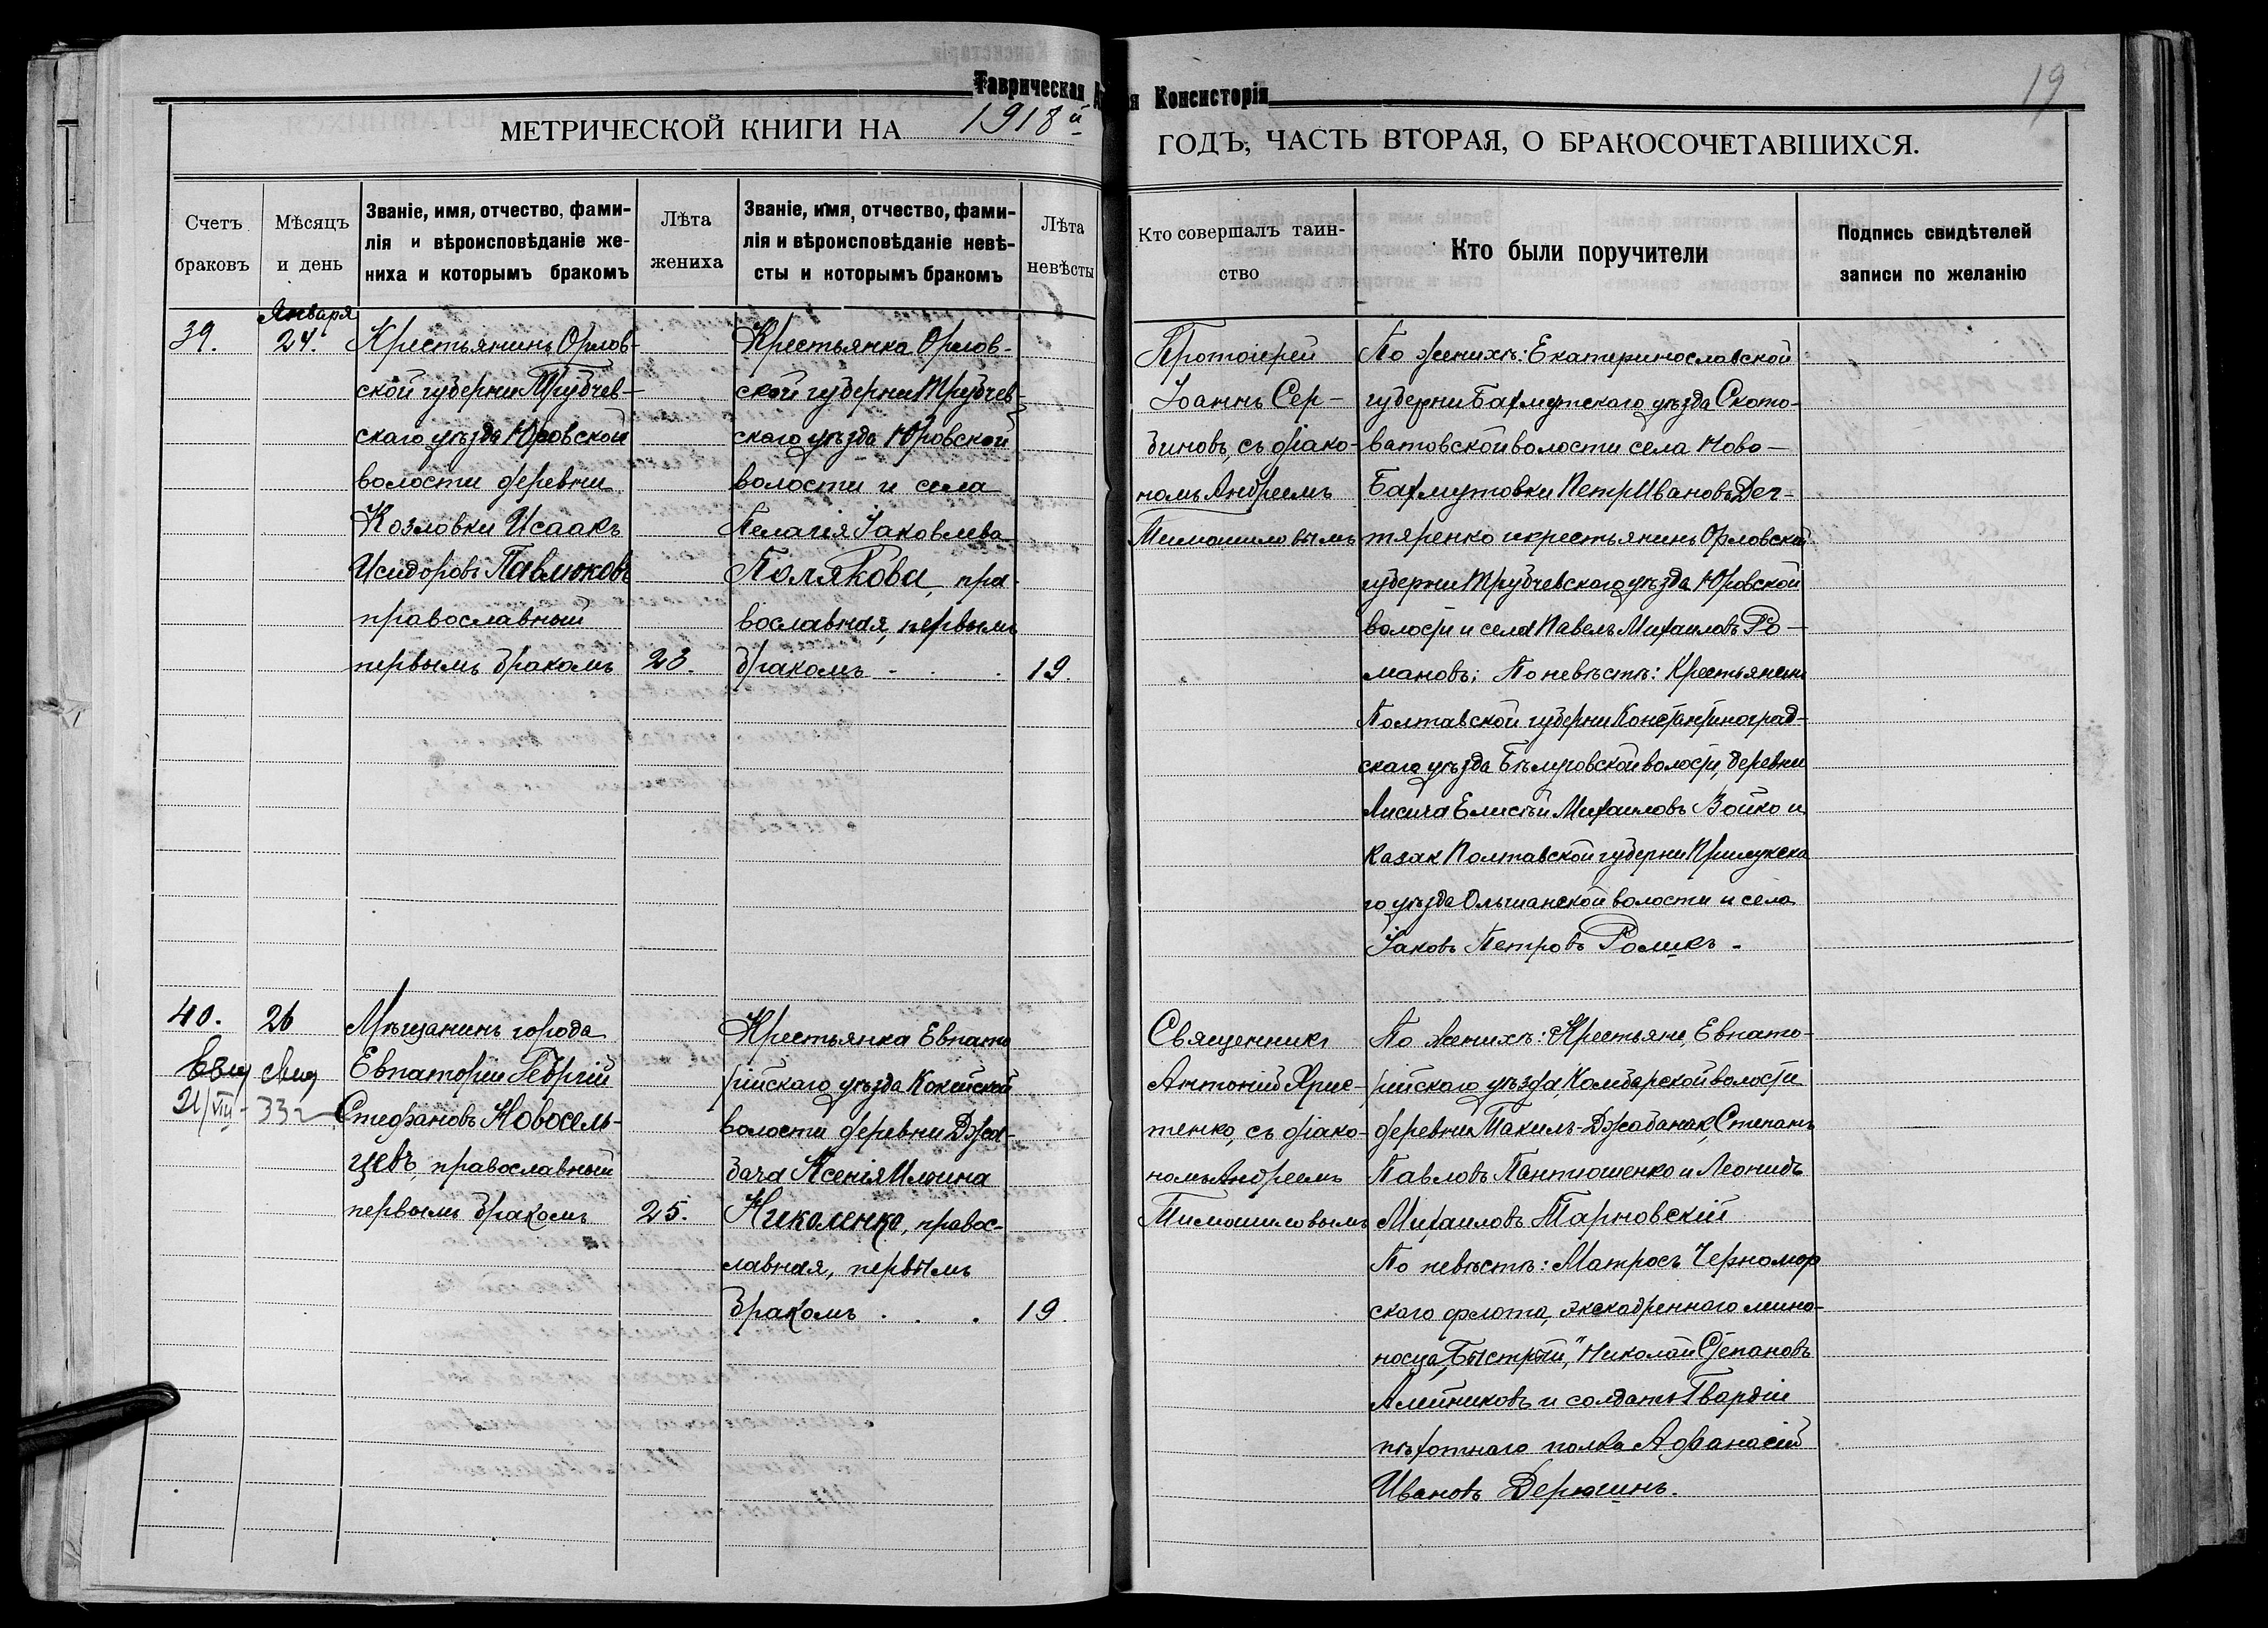 Таврическая
я Консисторія
19
МЕТРИЧЕСКОЙ КНИГИ НА 1918й
ГОДЪ, ЧАСТЬ ВТОРАЯ, О БРАКОСОЧЕТАВШИХСЯ.
Счетъ
браковъ
Мѣсяцъ
и день
Званіе, имя, отчество, фами-
лія и вѣроисповѣданіе же-
ниха и которымъ бракомъ
Лѣта
жениха
Званіе, имя, отчество, фами-
лія и вѣроисповѣданіе невѣ-
сты и которымъ бракомъ
Лѣта
невѣсты
Кто совершалъ таин-
ство
Кто были поручители
Подпись свидѣтелей
записи по желанію
39.
Января
24.
Крестьянинъ Орлов-
ской губерніи Трубчев-
скаго уѣзда Юровской
волости деревни
Козловки Исаакъ
Исидоровъ Павлюковъ
православный
первымъ бракомъ
23.
Крестьянка Орлов-
ской губерніи Трубчев-
скаго уѣзда Юровской
волости и села
Пелагія Іаковлева
Полякова, пра-
вославная, первымъ
бракомъ - . .
19.
Протоіерей
Іоаннъ Сер-
биновъ, съ діако-
номъ Андреемъ
Тимошиловымъ
По женихѣ: Екатеринославской
губерніи Бахмутскаго уѣзда Ското-
ватовской волости села Ново-
Бахмутовки Петръ Ивановъ Дег-
тяренко и крестьянинъ Орловской
губерніи Трубчевскаго уѣзда Юровской
волости и села Павелъ Михаиловъ Ро-
мановъ; По невѣстѣ: Крестьянинъ
Полтавской губерніи Константиноград-
скаго уѣзда волости, деревни
Михаиловъ Бойко и
Казак Полтавской губерніи Прилукска
го уѣзда Ольшанской волости и села
Іаковъ Петровъ Роликъ -
40.
26
21/VIII - 33 г
Мѣщанинъ города
Евпаторіи Георгій
Стефановъ Новосель-
цевъ, православный
первымъ бракомъ
25.
Крестьянка Евпато
рійскаго уѣзда Кокейской
волости деревни Джа-
бача Ксенія Ильина
Николенко, правос-
лавная, первымъ
бракомъ . . .
19.
Священникъ
Антоній Хрис-
тенко, съ діако-
номъ Андреемъ
Тимошиловымъ
По женихѣ: Крестьяне, Евпато-
рійскаго уѣзда, Камбарской волости
деревни Такилъ-Джабанак, Степанъ
Павловъ Пантюшенко и Леонидъ
Михаиловъ Тарновскій
По невѣстѣ: Матросъ Черномор
скаго флота, эскадреннаго мино-
носца „Быстрый," Николай Степановъ
Алейниковъ и солдатъ Гвардіи
пѣхотнаго полка Афанасій
Ивановъ Дерюгинъ.